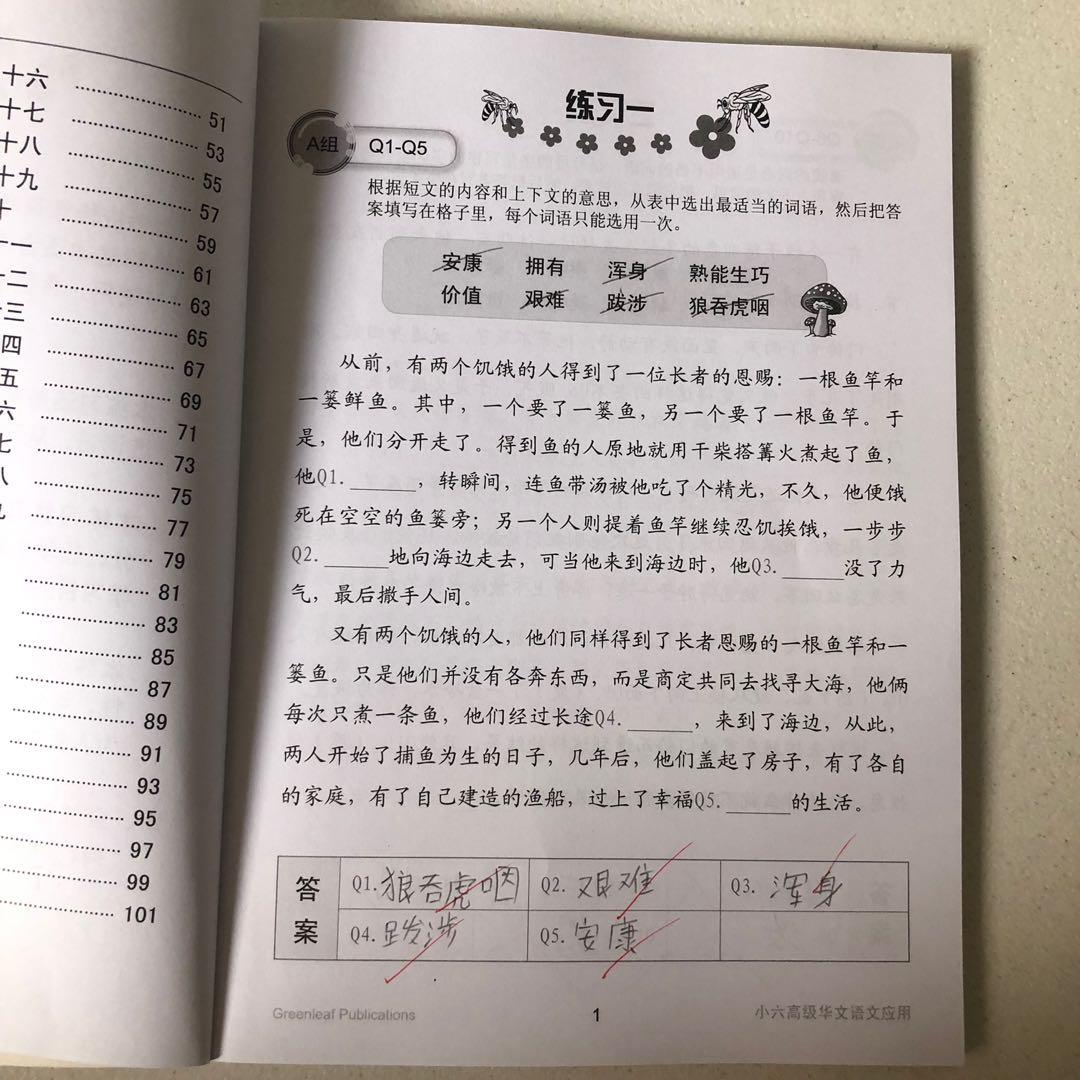 十六 …………… 51
十七 …………… 53
十八 …………… 55
十九 …………… 57
十 …………… 59
十一 …………… 61
十二 …………… 63
十三 …………… 65
四 …………… 67
五 …………… 69
六 …………… 71
七 …………… 73
八 …………… 75
…………… 77
…………… 79
…………… 81
…………… 83
…………… 85
…………… 87
…………… 89
…………… 91
…………… 93
…………… 95
…………… 97
…………… 99
…………… 101
练习一
A组 Q1-Q5
根据短文的内容和上下文的意思，从表中选出最适当的词语，然后把答
案填写在格子里，每个词语只能选用一次。
安康 拥有 浑身 熟能生巧
价值 艰难 跋涉 狼吞虎咽
从前，有两个饥饿的人得到了一位长者的恩赐：一根鱼竿和
一篓鲜鱼。其中，一个要了一篓鱼，另一个要了一根鱼竿。于
是，他们分开走了。得到鱼的人原地就用干柴搭篝火煮起了鱼，
他Q1. ______，转瞬间，连鱼带汤被他吃了个精光，不久，他便饿
死在空空的鱼篓旁；另一个人则提着鱼竿继续忍饥挨饿，一步步
Q2. ______地向海边走去，可当他来到海边时，他Q3. ______没了力
气，最后撒手人间。
又有两个饥饿的人，他们同样得到了长者恩赐的一根鱼竿和一
篓鱼。只是他们并没有各奔东西，而是商定共同去找寻大海，他俩
每次只煮一条鱼，他们经过长途Q4. ______，来到了海边，从此，
两人开始了捕鱼为生的日子，几年后，他们盖起了房子，有了各自
的家庭，有了自己建造的渔船，过上了幸福Q5. ______的生活。
答案 Q1. 狼吞虎咽 Q2. 艰难 Q3. 浑身
Q4. 跋涉 Q5. 安康
Greenleaf Publications 1 小六高级华文语文应用